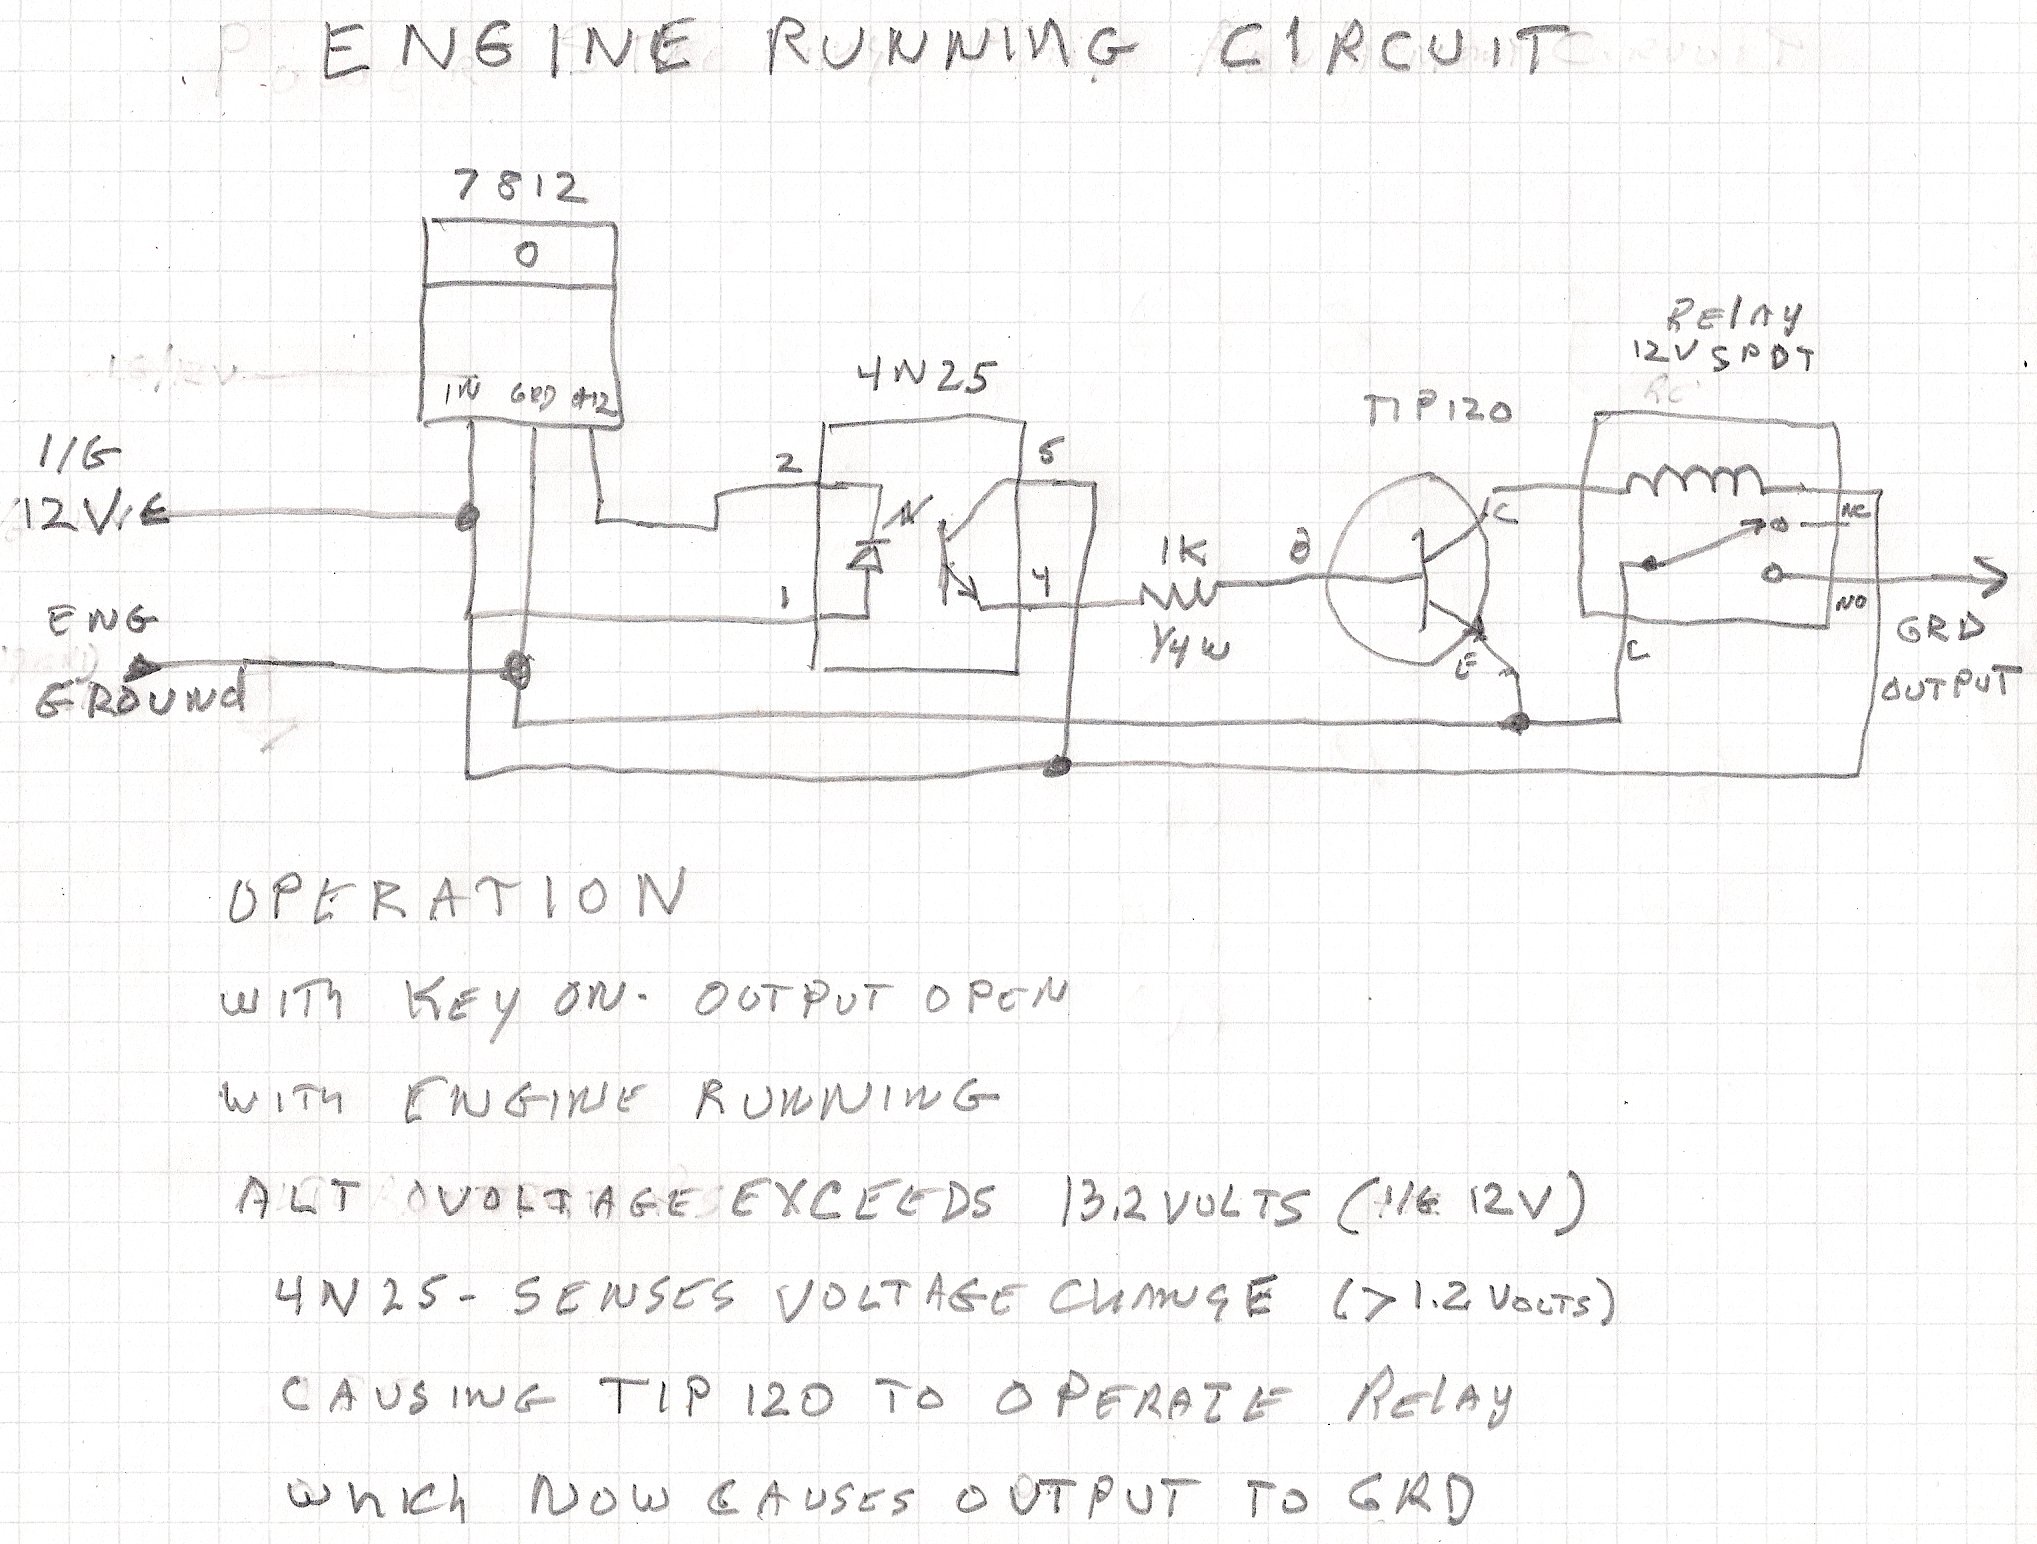 ENGINE RUNNING CIRCUIT
7812
O
IN GRD +12
4N25
RELAY
12V SPDT
TIP120
I/G
12V
2
5
C
NC
1K
B
1
4
ENG
GROUND
1/4W
E
C
NO
GRD
OUTPUT
OPERATION
WITH KEY ON - OUTPUT OPEN
WITH ENGINE RUNNING
ALT VOLTAGE EXCEEDS 13.2 VOLTS (I/G 12V)
4N25 - SENSES VOLTAGE CHANGE (>1.2 VOLTS)
CAUSING TIP 120 TO OPERATE RELAY
WHICH NOW CAUSES OUTPUT TO GRD